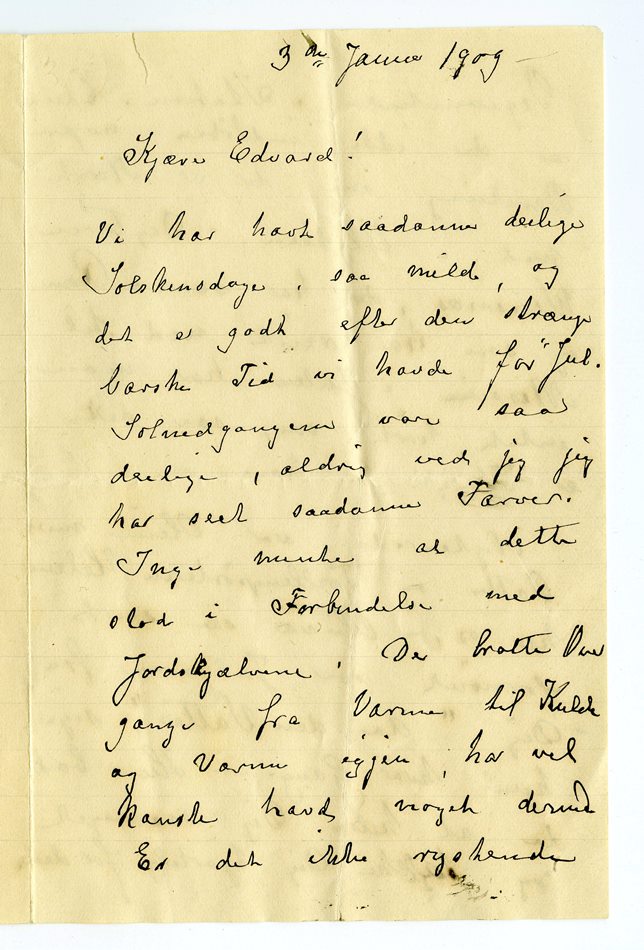 3die Janua 1909
Kjære Edvard!
Vi har havt saadanne deilige
Solskinsdage, saa milde, og
det er godt efter den strænge
barske Tid vi havde før Jul.
Solnedgangene vare saa
deilige, aldrig ved jeg jeg
har seet saadanne Farver.
Inge mente at dette
stod i Forbindelse med
Jordskjælvene. De bratte Over
gange fra Varme til Kulde
og Varme igjen, har vel
kanske havt noget dermed
Er det ikke rystende